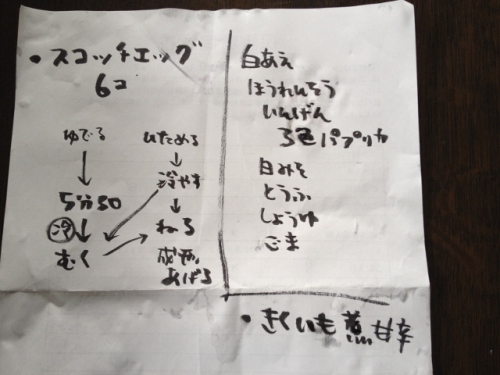 ・スコッチエッグ
6コ
ゆでる
↓
5分30
冷↓
むく
いためる
↓
冷やす
↓
ねる
成形
あげる
白あえ
ほうれんそう
いんげん
3色パプリカ
白みそ
とうふ
しょうゆ
ごま
・きくいも煮 甘辛